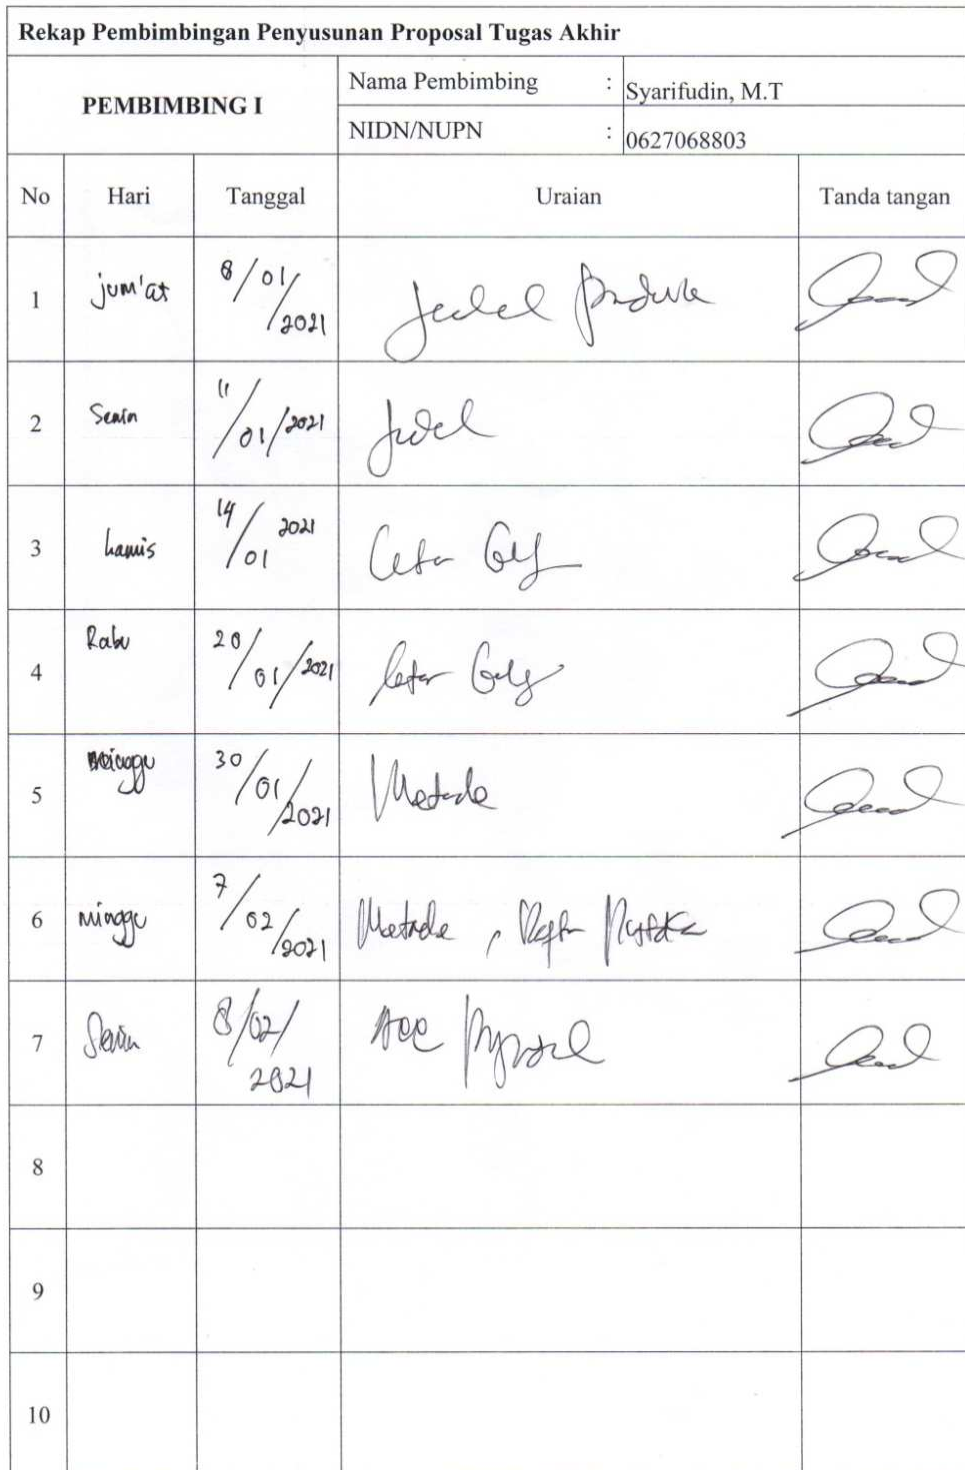 Rekap Pembimbingan Penyusunan Proposal Tugas Akhir
PEMBIMBING I
Nama Pembimbing : Syarifudin, M.T
NIDN/NUPN : 0627068803
No Hari Tanggal Uraian Tanda tangan
1 jum'at 8/01/2021
2 Senin 11/01/2021
3 kamis 14/01 2021
4 Rabu 20/01/2021
5 minggu 30/01/2021 Metode
6 minggu 7/02/2021 Metode,
7 Senin 8/02/2021 ACC
8
9
10